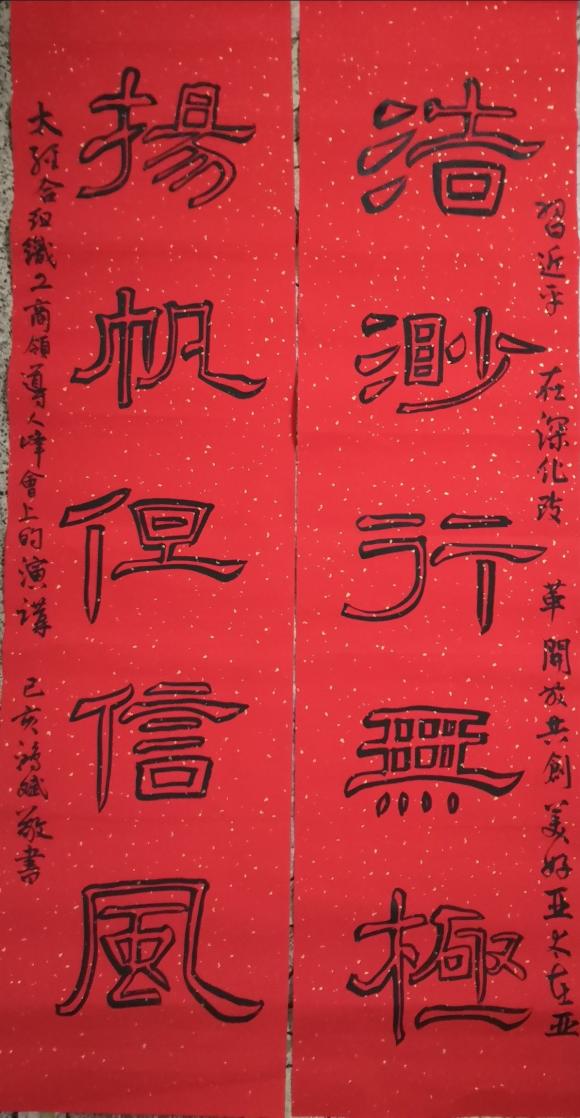 習近平 在深化改 革開放共創美好亚太在亚
浩渺行無極
揚帆但信風
太經合组織工商領導人峰會上的演講 己亥 敬書